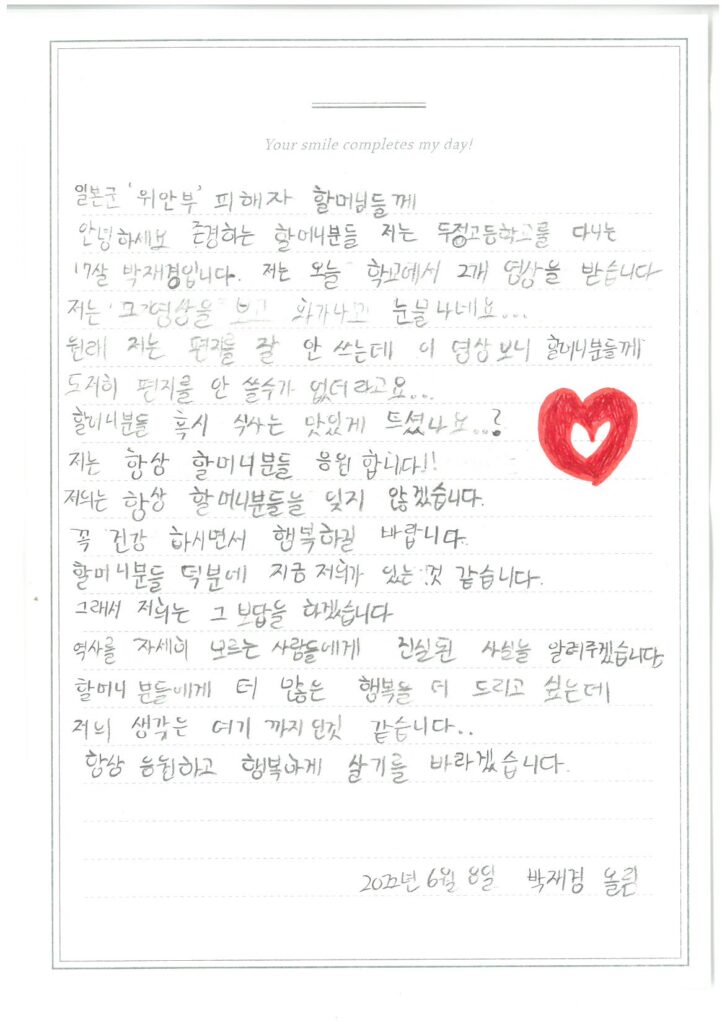 Your smile completes my day!
일본군 '위안부' 피해자 할머님들께
안녕하세요 존경하는 할머니분들 저는 두정고등학교를 다니는
17살 박재경입니다. 저는 오늘 학교에서 2개 영상을 받습니다
저는 그 영상을 보고 화가나고 눈물나네요...
원래 저는 편지를 잘 안 쓰는데 이 영상보니 할머니분들께
도저히 편지를 안 쓸수가 없더라고요...
할머니분들 혹시 식사는 맛있게 드셨나요..?
저는 항상 할머니분들 응원 합니다!!
저희는 항상 할머니분들을 잊지 않겠습니다.
꼭 건강 하시면서 행복하길 바랍니다.
할머니분들 덕분에 지금 저희가 있는 것 같습니다.
그래서 저희는 그 보답을 하겠습니다
역사를 자세히 모르는 사람들에게 진실된 사실을 알려주겠습니다
할머니 분들에게 더 많은 행복을 더 드리고 싶은데
저의 생각은 여기 까지 인것 같습니다..
항상 응원하고 행복하게 살기를 바라겠습니다.
2022년 6월 8일 박재경 올림